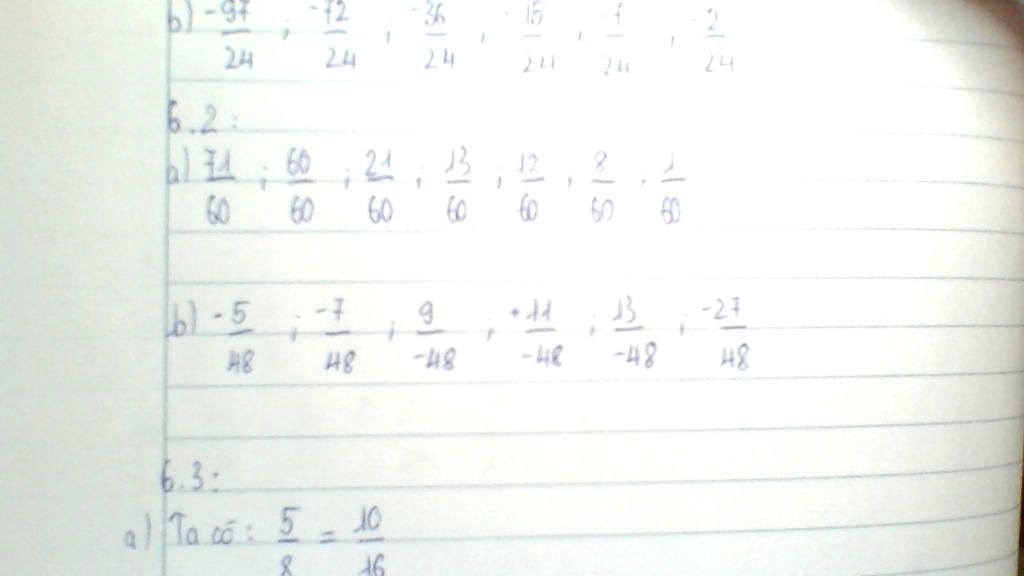 b) -97/24 ; -72/24 ; -36/24 ; -15/24 ; -7/24 ; -2/24
6.2:
a) 71/60 ; 60/60 ; 21/60 ; 13/60 ; 12/60 ; 8/60 ; 1/60
b) -5/48 ; -7/48 ; 9/-48 ; +11/-48 ; 13/-48 ; -27/48
6.3:
a) Ta có: 5/8 = 10/16